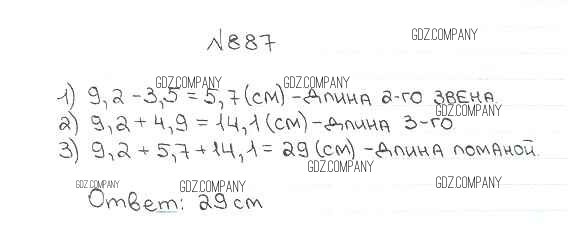 №887
GDZ.COMPANY
GDZ.COMPANY GDZ.COMPANY
1) 9,2 - 3,5 = 5,7 (см) - длина 2-го звена.
GDZ.COMPANY
2) 9,2 + 4,9 = 14,1 (см) - длина 3-го
3) 9,2 + 5,7 + 14,1 = 29 (см) - длина ломаной.
GDZ.COMPANY
GDZ.COMPANY GDZ.COMPANY GDZ.COMPANY
Ответ: 29 см